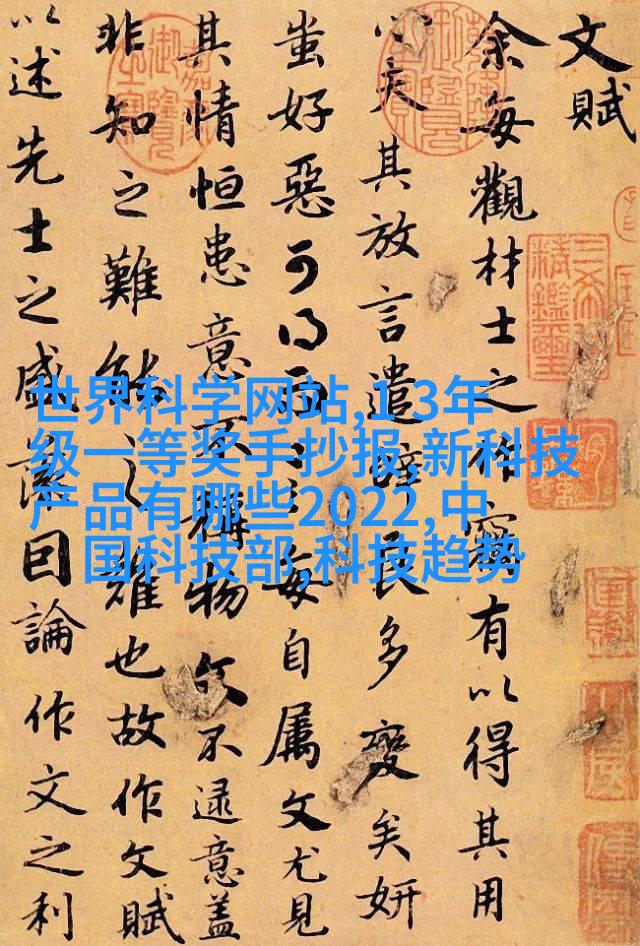 文賦
余每觀材士之作竊有以得其用
心夫其放言遣辭良多變矣妍
蚩好惡可得而言每自屬文尤見
其情恒患意不稱物文不逮意蓋
非知之難能之難也故作文賦
以述先士之盛藻因論作文之利
世界科学网站,1-3年
级一等奖手抄报,新科技
产品有哪些2022,中
国科技部,科技趋势